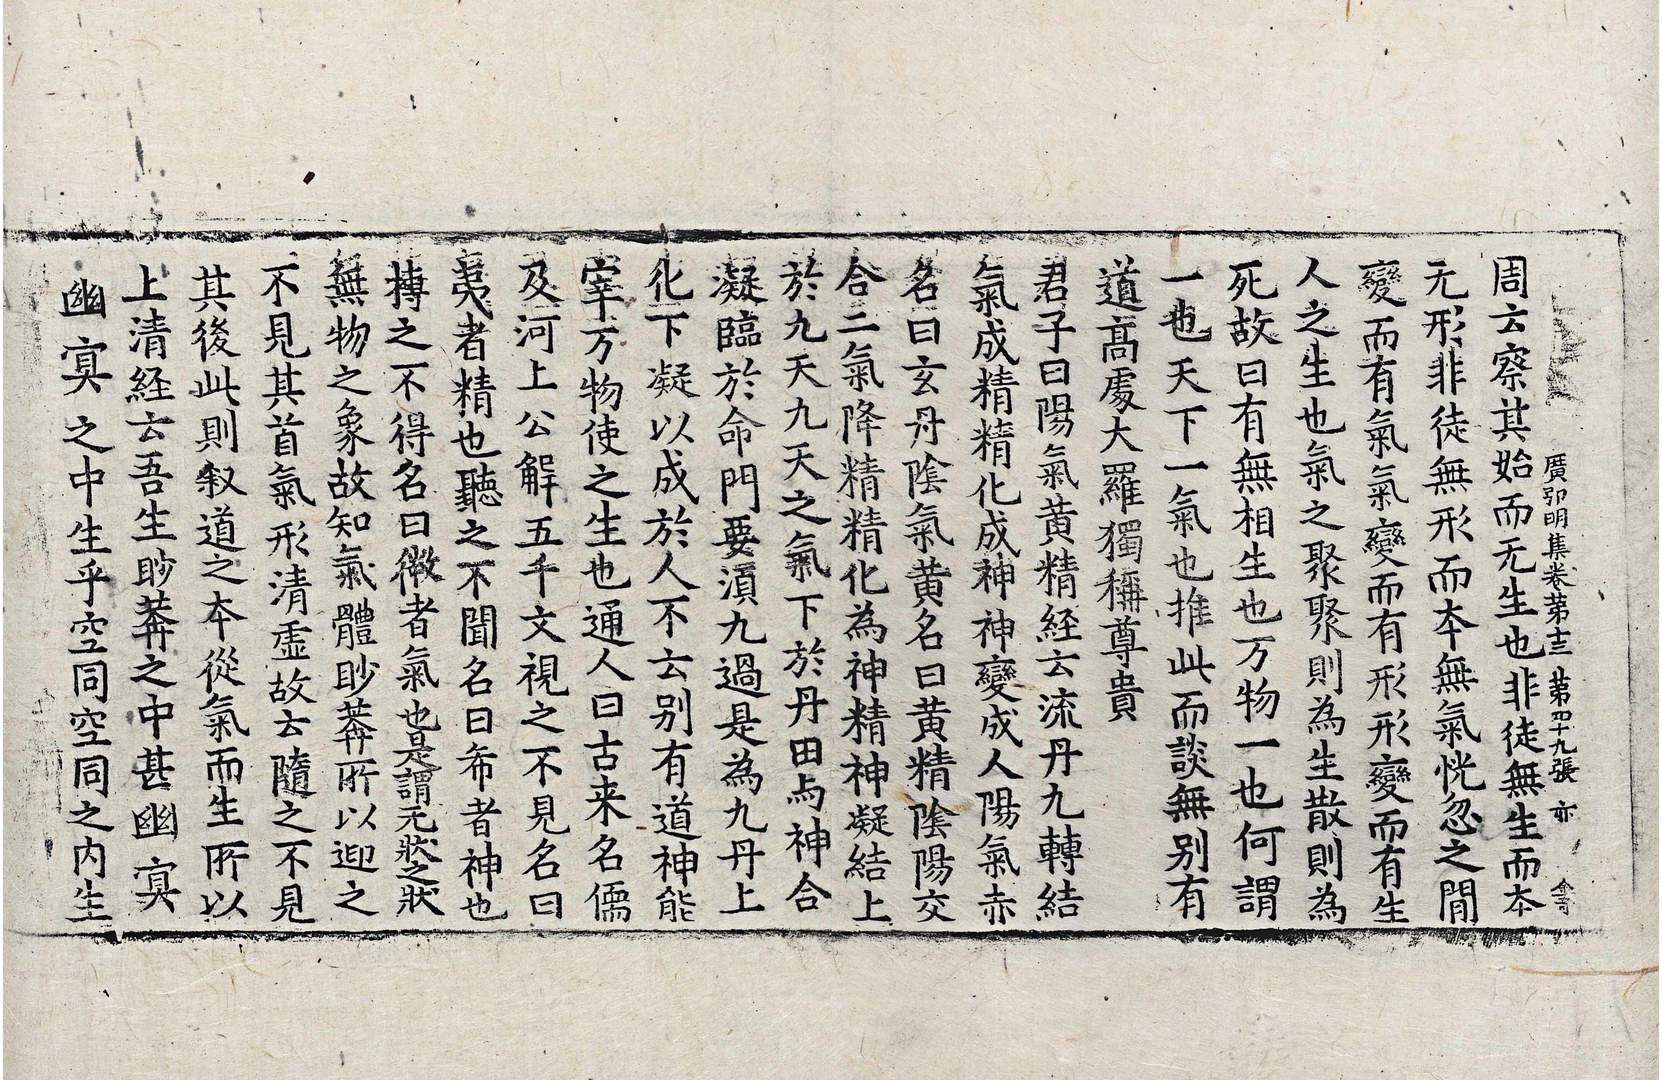 廣弘明集卷第十三 第四十九張 亦
周云察其始而无生也非徒無生而本
无形非徒無形而本無氣恍忽之間
變而有氣氣變而有形形變而有生
人之生也氣之聚聚則為生散則為
死故曰有無相生也万物一也何謂
一也天下一氣也推此而談無別有
道高處大羅獨稱尊貴
君子曰陽氣黃精経云流丹九轉結
氣成精精化成神神變成人陽氣赤
名曰玄丹陰氣黃名曰黃精陰陽交
合二氣降精精化為神精神凝結上
於九天九天之氣下於丹田与神合
凝臨於命門要湏九過是為九丹上
化下凝以成於人不云別有道神能
宰万物使之生也通人曰古来名儒
及河上公解五千文視之不見名曰
夷者精也聽之不聞名曰希者神也
摶之不得名曰微者氣也是謂无狀之狀
無物之象故知氣體眇莽所以迎之
不見其首氣形清虛故云隨之不見
其後此則叙道之本從氣而生所以
上清経云吾生眇莽之中甚幽冥
幽冥之中生乎空同空同之內生